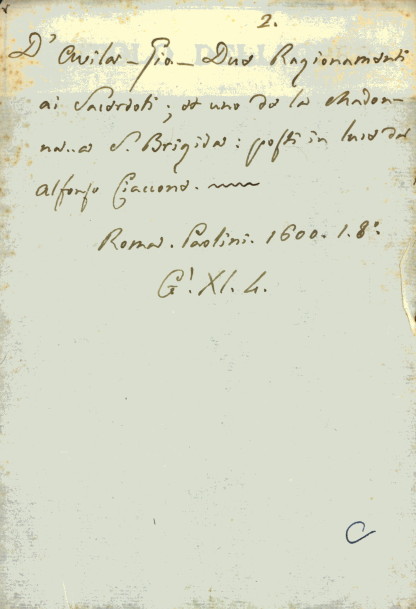 2.
D' Avila - Gio - Due Ragionamenti
ai Sacerdoti; et uno de la Madon-
na.. a S. Brigida: posti in luce da
Alfonso Ciaccone.
Roma. Paolini. 1600. 1. 8°.
G'. XI. 4.
C